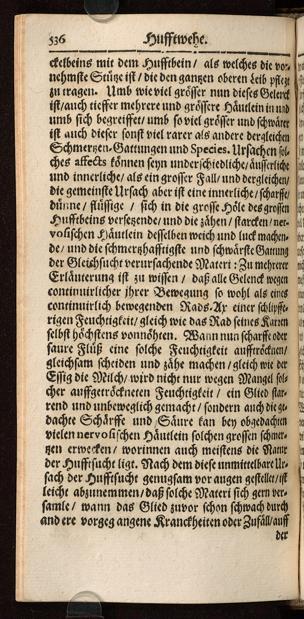 536 Hufftwehe.
ckelbeins mit dem Hufftbein/ als welches die vor-
nehmste Stütze ist/ die den gantzen oberen Leib pflegt
zu tragen. Umb wie viel grösser nun dieses Gelenck
ist/ auch tieffer mehrere und grössere Häutlein in und
umb sich begreiffet/ umb so viel grösser und schwärer
ist auch dieser sonst viel rarer als andere dergleichen
Schmertzen-Gattungen und Species. Ursachen sol-
ches affects können seyn underschiedliche/ äusserliche
und innerliche/ als ein grosser Fall/ und dergleichen/
die gemeinste Ursach aber ist eine innerliche/ scharffe/
dünne/ flüssige / sich in die grosse Höle des grossen
Hufftbeins versetzende/ und die zähen/ starcken/ ner-
vosischen Häutlein desselben weich und luck machen-
de/ und die schmertzhafftigste und schwärste Gattung
der Gleichsucht verursachende Materi: Zu mehrerer
Erläuterung ist zu wissen / daß alle Gelenck wegen
continuirlicher ihrer Bewegung so wohl als eines
continuirlich bewegenden Rads-Ax einer schlipffe-
rigen Feuchtigkeit/ gleich wie das Rad seines Karren
selbst höchstens vonnöhten. Wann nun scharffe oder
saure Flüß eine solche Feuchtigkeit aufftröcknen/
gleichsam scheiden und zähe machen / gleich wie der
Essig die Milch/ wird nicht nur wegen Mangel sol-
cher auffgetröckneten Feuchtigkeit / ein Glied star-
rend und unbeweglich gemacht/ sondern auch die ge-
dachte Schärffe und Säure kan bey obgedachten
vielen nervosischen Häutlein solchen grossen schmer-
tzen erwecken/ worinnen auch meistens die Natur
der Hufftsucht ligt. Nach dem diese unmittelbare Ur-
sach der Hufftsucht genugsam vor augen gestellet/ ist
leicht abzunemmen/ daß solche Materi sich gern ver-
samle/ wann das Glied zuvor schon schwach durch
andere vorgegangene Kranckheiten oder Zufäll/ auff
der